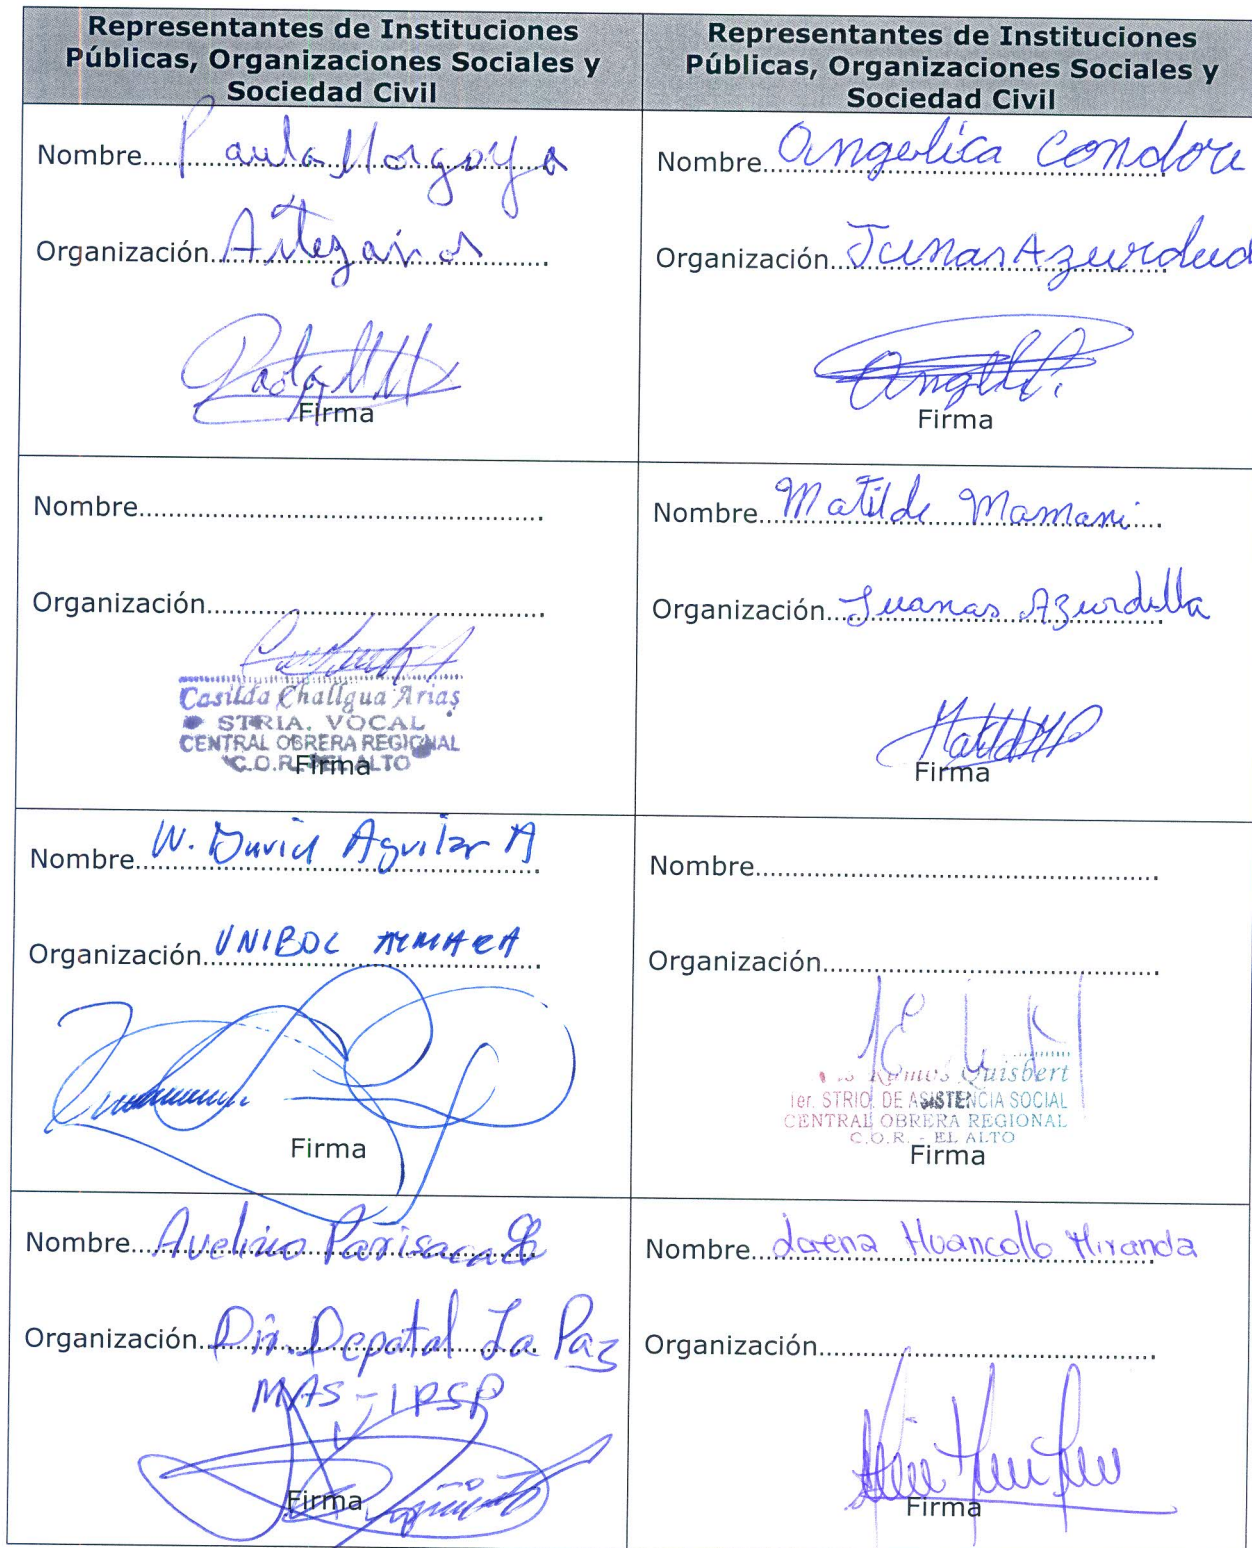 Representantes de Instituciones
Públicas, Organizaciones Sociales y
Sociedad Civil
Representantes de Instituciones
Públicas, Organizaciones Sociales y
Sociedad Civil
Nombre Paula
Organización Artezanos
Firma
Nombre Angelica Condori
Organización Juanas Azurduy
Firma
Nombre
Organización
Casilda Challgua Arias
STRIA. VOCAL
CENTRAL OBRERA REGIONAL
C.O.R. EL ALTO
Firma
Nombre Matilde Mamani
Organización Juanas Azurdulla
Firma
Nombre W. David Aguilar A
Organización UNIBOL AYMARA
Firma
Nombre
Organización
Ramos Quisbert
1er. STRIO. DE ASISTENCIA SOCIAL
CENTRAL OBRERA REGIONAL
C.O.R. - EL ALTO
Firma
Nombre Avelino Parisaca
Organización Dir. Depatal La Paz
MAS-IPSP
Firma
Nombre Lorena Huancollo Miranda
Organización
Firma